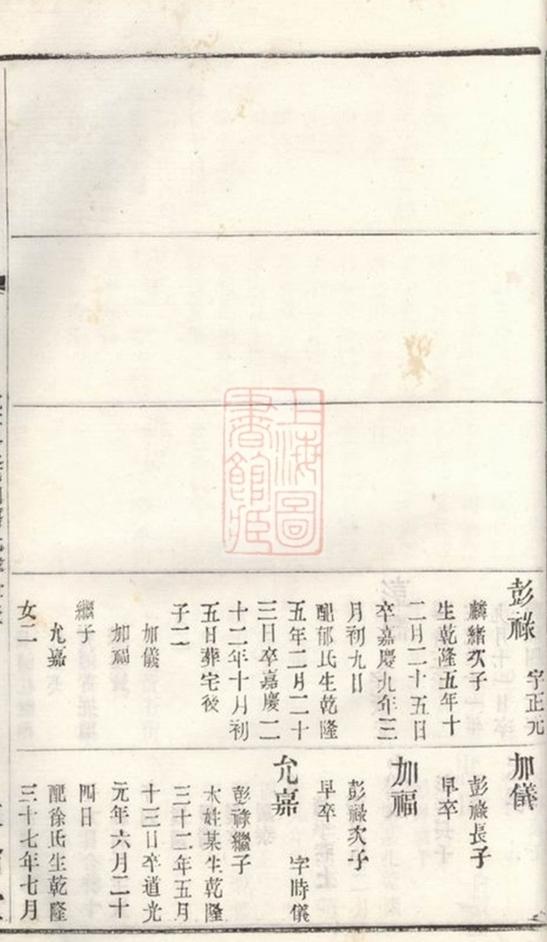 彭祿 字正元
麟緒次子
生乾隆五年十
二月二十五日
卒嘉慶九年三
月初九日
配郁氏生乾隆
五年二月二十
三日卒嘉慶二
十二年十月初
五日葬宅後
子二
加儀
加福
繼子
允嘉
女二
加儀
彭祿長子
早卒
加福
彭祿次子
早卒
允嘉 字時儀
彭祿繼子
本姓某生乾隆
三十二年五月
十三日卒道光
元年六月二十
四日
配徐氏生乾隆
三十七年七月
上海圖
書館藏